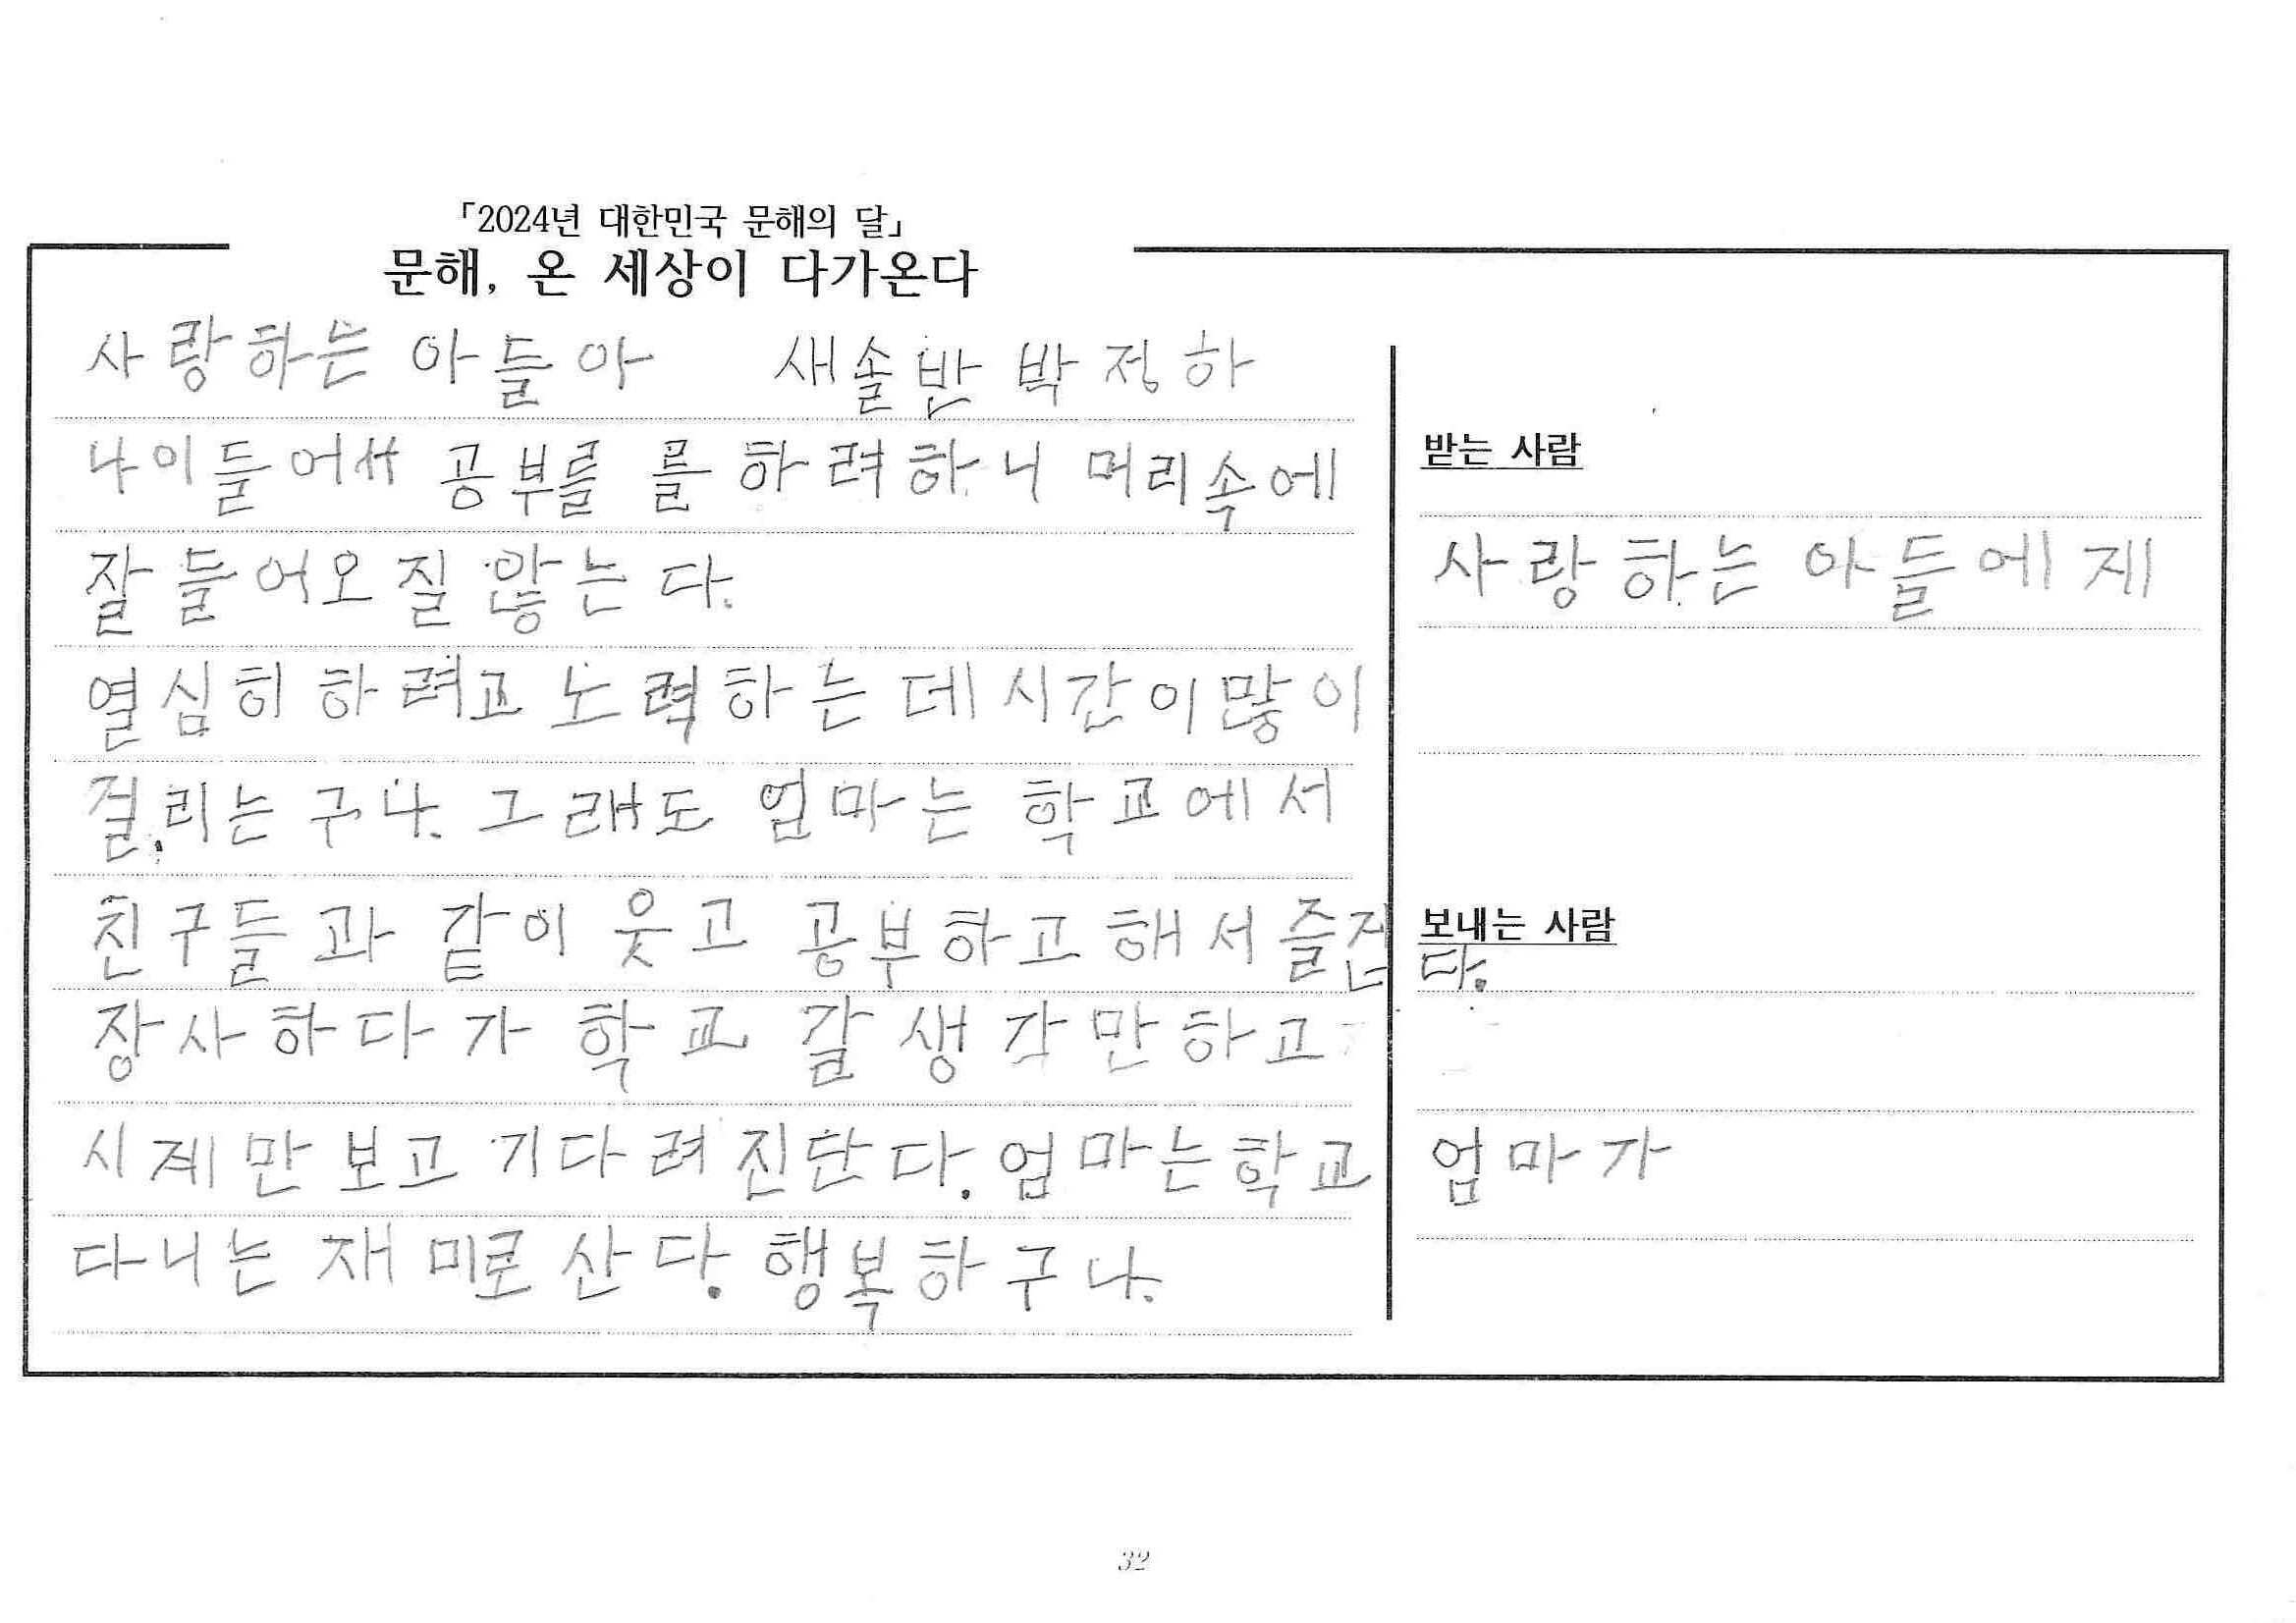 「2024년 대한민국 문해의 달」
문해, 온 세상이 다가온다
사랑하는 아들아 새솔반 박정하
나이들어서 공부를 를 하려하니 머리속에
잘 들어오질 않는다.
열심히 하려고 노력하는데 시간이 많이
걸리는구나. 그래도 엄마는 학교에서
친구들과 같이 웃고 공부하고 해서 즐겁다.
장사하다가 학교 갈 생각만하고
시계만 보고 기다려진단다. 엄마는 학교
다니는 재미로 산다. 행복하구나.
받는 사람
사랑하는 아들에게
보내는 사람
엄마가
32